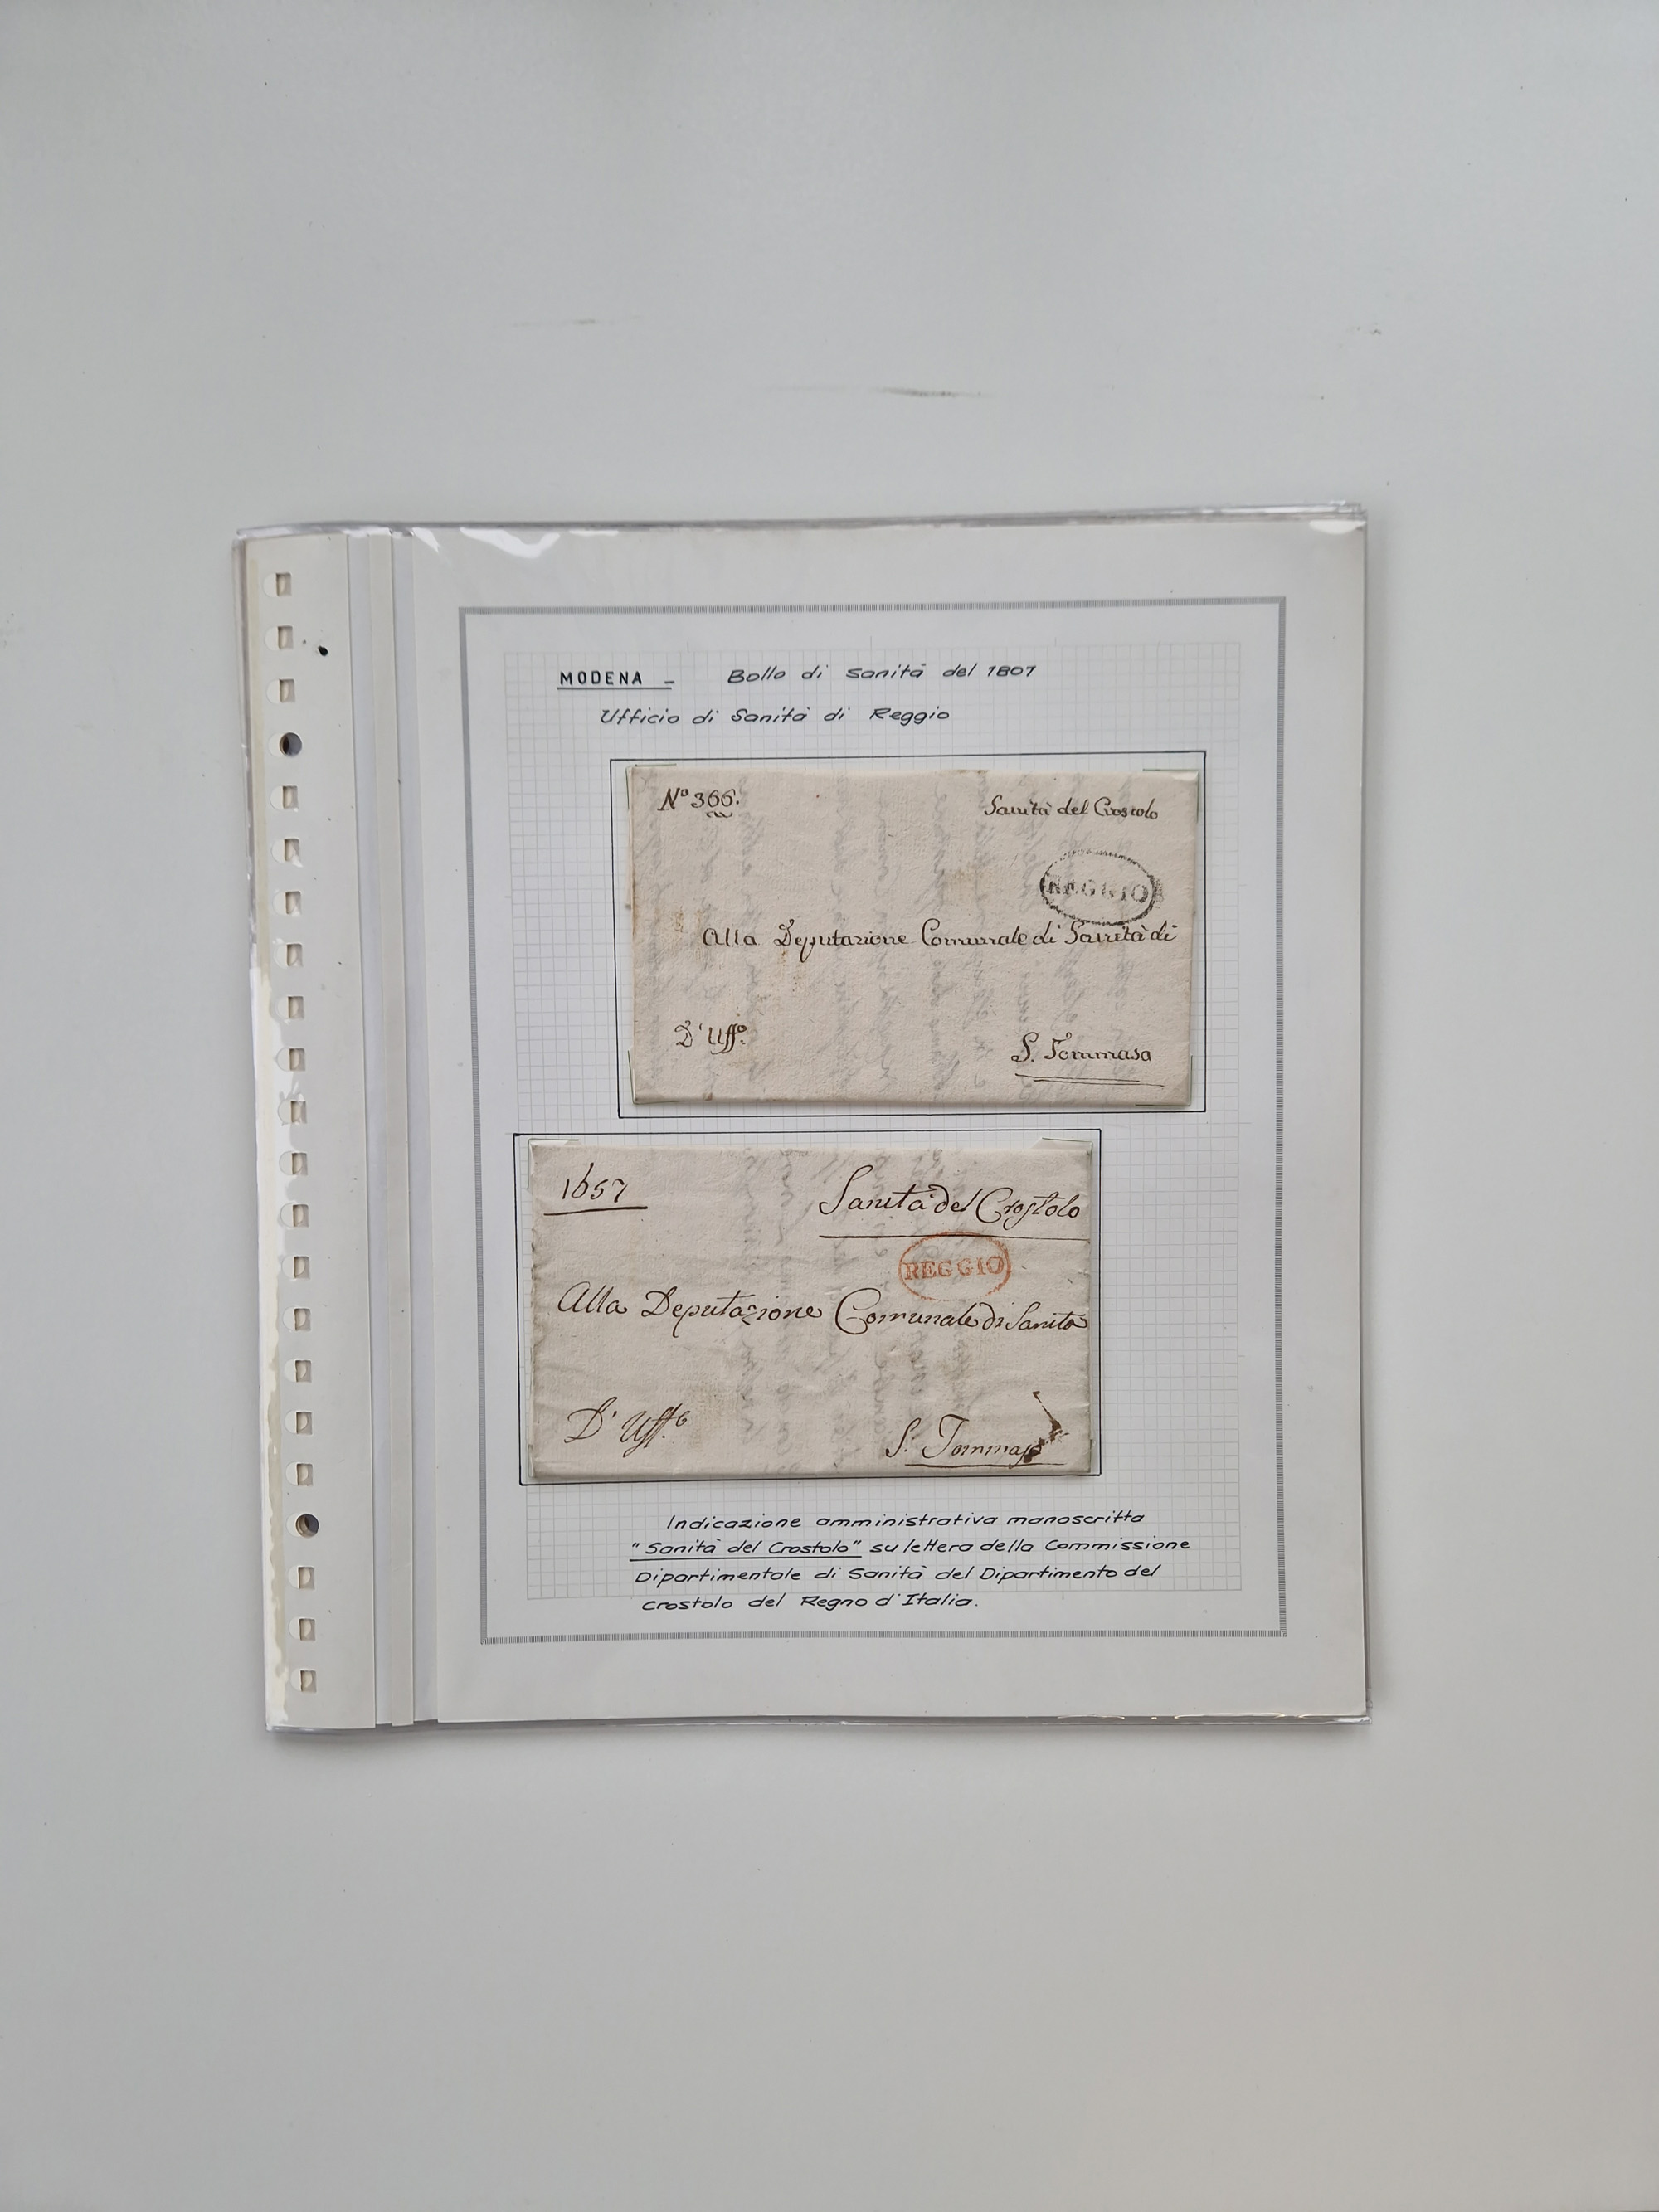 MODENA – Bollo di Sanità del 1807
Ufficio di Sanità di Reggio
N° 366.
Sanità del Crostolo
REGGIO
Alla Deputazione Comunale di Sanità di
D'Uff°.
S. Tommaso
1657
Sanità del Crostolo
REGGIO
Alla Deputazione Comunale di Sanità
D'Uff.°
S. Tommaso
Indicazione amministrativa manoscritta
"Sanità del Crostolo" su lettera della Commissione
Dipartimentale di Sanità del Dipartimento del
Crostolo del Regno d'Italia.